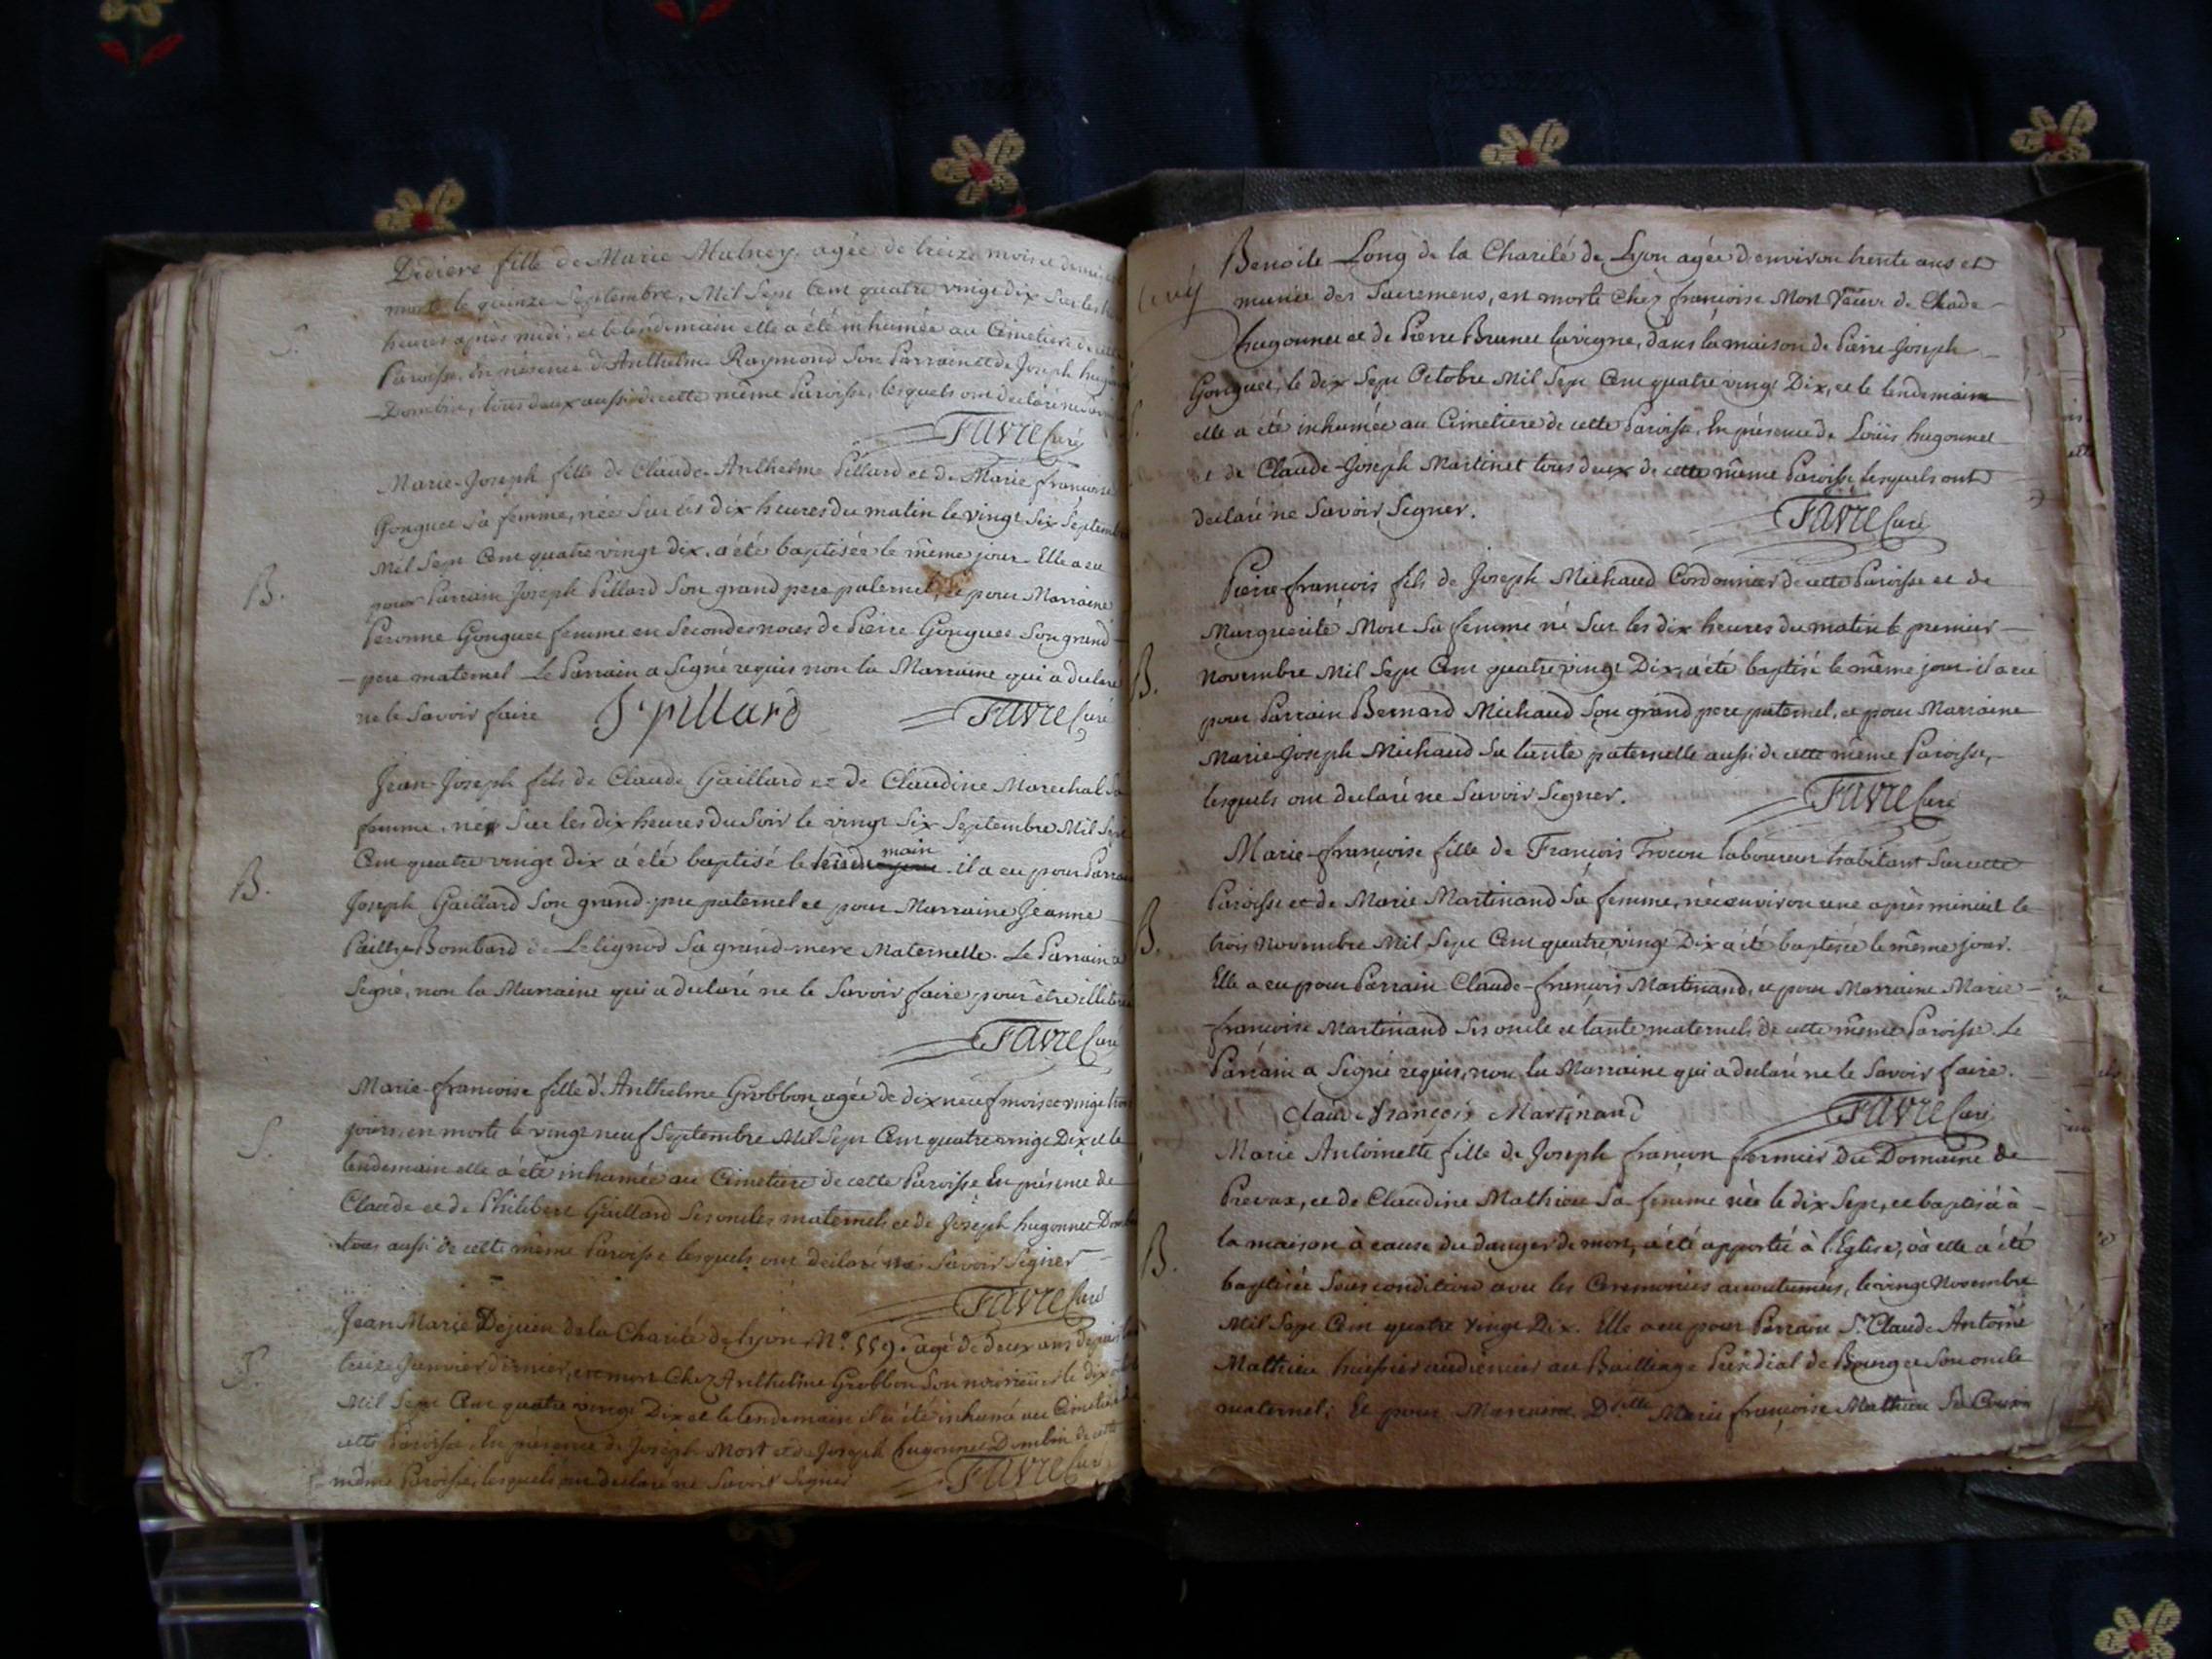 Didiere fille de Marie Mulney, agée de treize mois et demi
morte le quinze Septembre, Mil Sept Cent quatre vingt dix sur les
heures après midi, et le lendemain elle a été inhumée au Cimetiere de cette
S.
Paroisse, En présence d'Anthelme Raymond Son Parrain et de Joseph hugonnet
Dombin, tous deux aussi de cette même Paroisse, lesquels ont déclaré ne
Favre Curé
Marie-Joseph fille de Claude-Anthelme Pillard et de Marie françoise
Gonguet sa femme, née Sur les dix heures du matin le vingt Six Septembre
Mil Sept Cent quatre vingt dix, a été baptisée le même jour. Elle a eu
B.
pour Parrain Joseph Pillard Son grand pere paternel, Et pour Marraine
Peronne Gonguet femme en Secondes noces de Pierre Gonguet Son grand-
pere maternel Le Parrain a Signé requis non la Marraine qui a declaré
ne le Savoir faire J. pillard Favre Curé
Jean-Joseph fils de Claude Gaillard et de Claudine Marechal Sa
femme, né Sur les dix heures du Soir le vingt Six Septembre Mil Sept
main
Cent quatre vingt dix a été baptisé le lende il a eu pour Parrain
B.
Joseph Gaillard Son grand-pere paternel et pour Marraine Jeanne
Bombard de Lelignod Sa grand-mere Maternelle. Le Parrain a
Signé, non la Marraine qui a declaré ne le Savoir faire pour être illiterée
Favre Curé
Marie-françoise fille d'Anthelme Grobbon agée de dix neuf mois et vingt trois
jours, est morte le vingt neuf Septembre Mil Sept Cent quatre vingt Dix et le
S.
lendemain elle a été inhumée au Cimetiere de cette Paroisse En présence de
Claude et de Philibert Gaillard Ses oncles maternels et de Joseph hugonnet Dombin
tous aussi de cette même Paroisse lesquels ont declaré ne Savoir Signer
Favre Curé
Jean Marie Dejuin de la Charité de Lyon, No. 559. agé de deux ans depuis le
S.
treize Janvier dernier, est mort Chez Anthelme Grobbon Son nourricier le dix
Mil Sept Cent quatre vingt Dix et le lendemain il a été inhumé au Cimetiere de
cette Paroisse, En présence de Joseph Mort et de Joseph hugonnet Dombin de cette
même Paroisse, lesquels ont declaré ne Savoir Signer Favre Curé
Benoite Long de la Charité de Lyon agée d'environ trente ans et
munie des Sacremens, est morte Chez françoise Mort Veuve de Claude
hugonnet et de Pierre Brunet lavigne, dans la maison de Pierre Joseph
Gonguet, le dix Sept Octobre Mil Sept Cent quatre vingt Dix, et le lendemain
elle a été inhumée au Cimetiere de cette Paroisse, En présence de Loüis hugonnet
et de Claude-Joseph Martinet tous deux de cette même Paroisse lesquels ont
declaré ne Savoir Signer.
Favre Curé
Pierre-françois fils de Joseph Michaud Cordonnier de cette Paroisse et de
Marguerite Mort Sa femme né Sur les dix heures du matin le premier
B.
Novembre Mil Sept Cent quatre vingt Dix, a été baptisé le même jour il a eu
pour Parrain Bernard Michaud Son grand pere paternel, et pour Marraine
Marie-Joseph Michaud Sa tante paternelle aussi de cette même Paroisse,
lesquels ont declaré ne Savoir Signer.
Favre Curé
Marie-françoise fille de François Trocon laboureur habitant Sur cette
Paroisse et de Marie Martinand Sa femme, née environ une après minuit le
B.
trois Novembre Mil Sept Cent quatre vingt Dix a été baptisée le même jour.
Elle a eu pour Parrain Claude-françois Martinand, et pour Marraine Marie-
françoise Martinand Ses oncle et tante maternels de cette même Paroisse. Le
Parrain a Signé requis, non la Marraine qui a declaré ne le Savoir faire.
Claude françois Martinand Favre Curé
Marie Antoinette fille de Joseph françon fermier du Domaine de
Prevax, et de Claudine Mathieu Sa femme née le dix Sept, et baptisée à
la maison à cause du danger de mort, a été apportée à l'Eglise, où elle a été
B.
baptisée Sous condition avec les Ceremonies accoutumées, le vingt Novembre
Mil Sept Cent quatre vingt Dix. Elle a eu pour Parrain Sr. Claude Antoine
Mathieu huissier audiencier au Bailliage Présidial de Bourg et Son oncle
maternel; Et pour Marraine Dselle Marie françoise Mathieu Sa Cousine